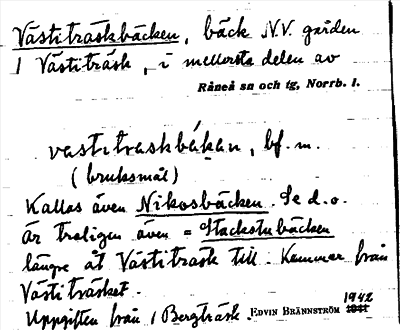 Västiträskbäcken, bäck N.V. gården
1 Västiträsk, i mellersta delen av
Råneå sn och tg, Norrb. l.
vastitraskbäkan, bf. m.
(bruksmål)
Kallas även Nikosbäcken. Se d.o.
Är troligen även = Stackstubäcken
längre åt Västiträsk till. Kommer från
Västiträsket.
Uppgiften från 1 Bergträsk. EDVIN BRÄNNSTRÖM 1942